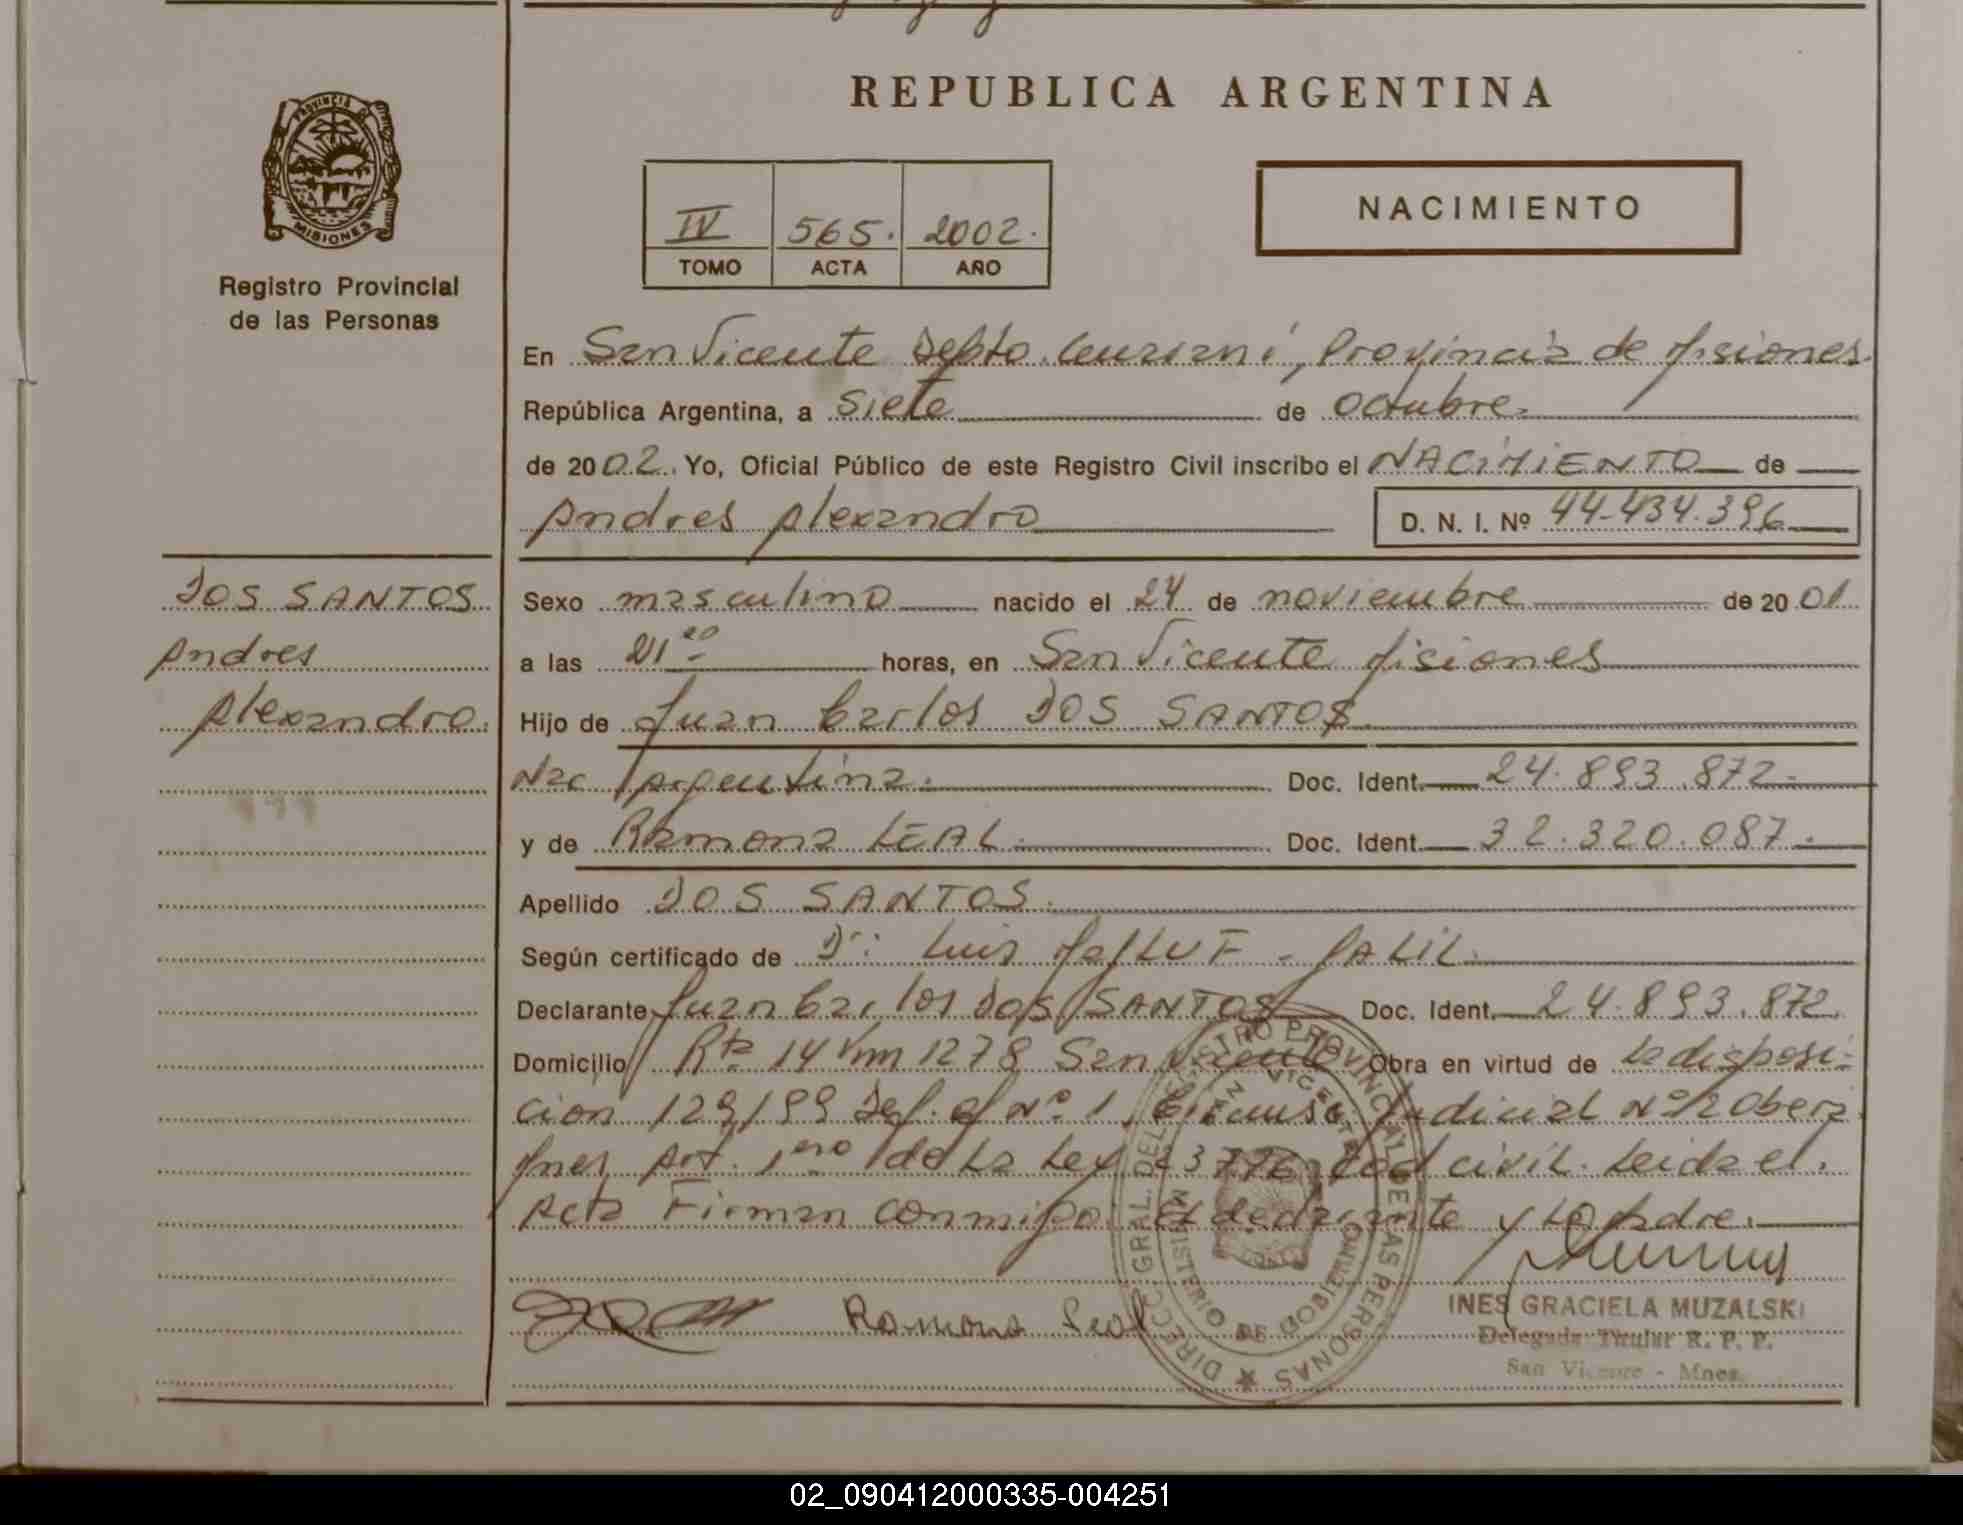 REPUBLICA ARGENTINA
PROVINCIA DE
MISIONES
Registro Provincial
de las Personas
IV 565. 2002.
TOMO ACTA AÑO
NACIMIENTO
En San Vicente Depto. Guarani, Provincia de Misiones.
República Argentina, a Siete de octubre.
de 2002. Yo, Oficial Público de este Registro Civil inscribo el NACIMIENTO de
Andres Alexandro
D. N. I. Nº 44.434.396
DOS SANTOS
Andres
Alexandro.
Sexo masculino nacido el 24 de noviembre de 2001
a las 21 horas, en San Vicente Misiones
Hijo de Juan Carlos DOS SANTOS
Nac Argentina. Doc. Ident. 24.893.872.
y de Ramona LEAL. Doc. Ident. 32.320.087.
Apellido DOS SANTOS.
Según certificado de Dr: Luis MALLUF - JALIL.
Declarante Juan Carlos DOS SANTOS Doc. Ident. 24.893.872.
Domicilio Rta 14 Km 1278 San Vicente Obra en virtud de la disposi-
cion 129/99 Def. of Nº 1, Circunsc. Judicial Nº 2 Obera
Mnes Art. 1ero de la Ley 23776 Cod civil. Leida el
Acta Firman conmigo: el declarante y la Madre.
Ramona Leal
INES GRACIELA MUZALSKI
Delegada Titular R. P. P.
San Vicente - Mnes.
DIRECC. GRAL. DEL REGISTRO PROVINCIAL DE LAS PERSONAS
SAN VICENTE
MINISTERIO DE GOBIERNO
02_090412000335-004251